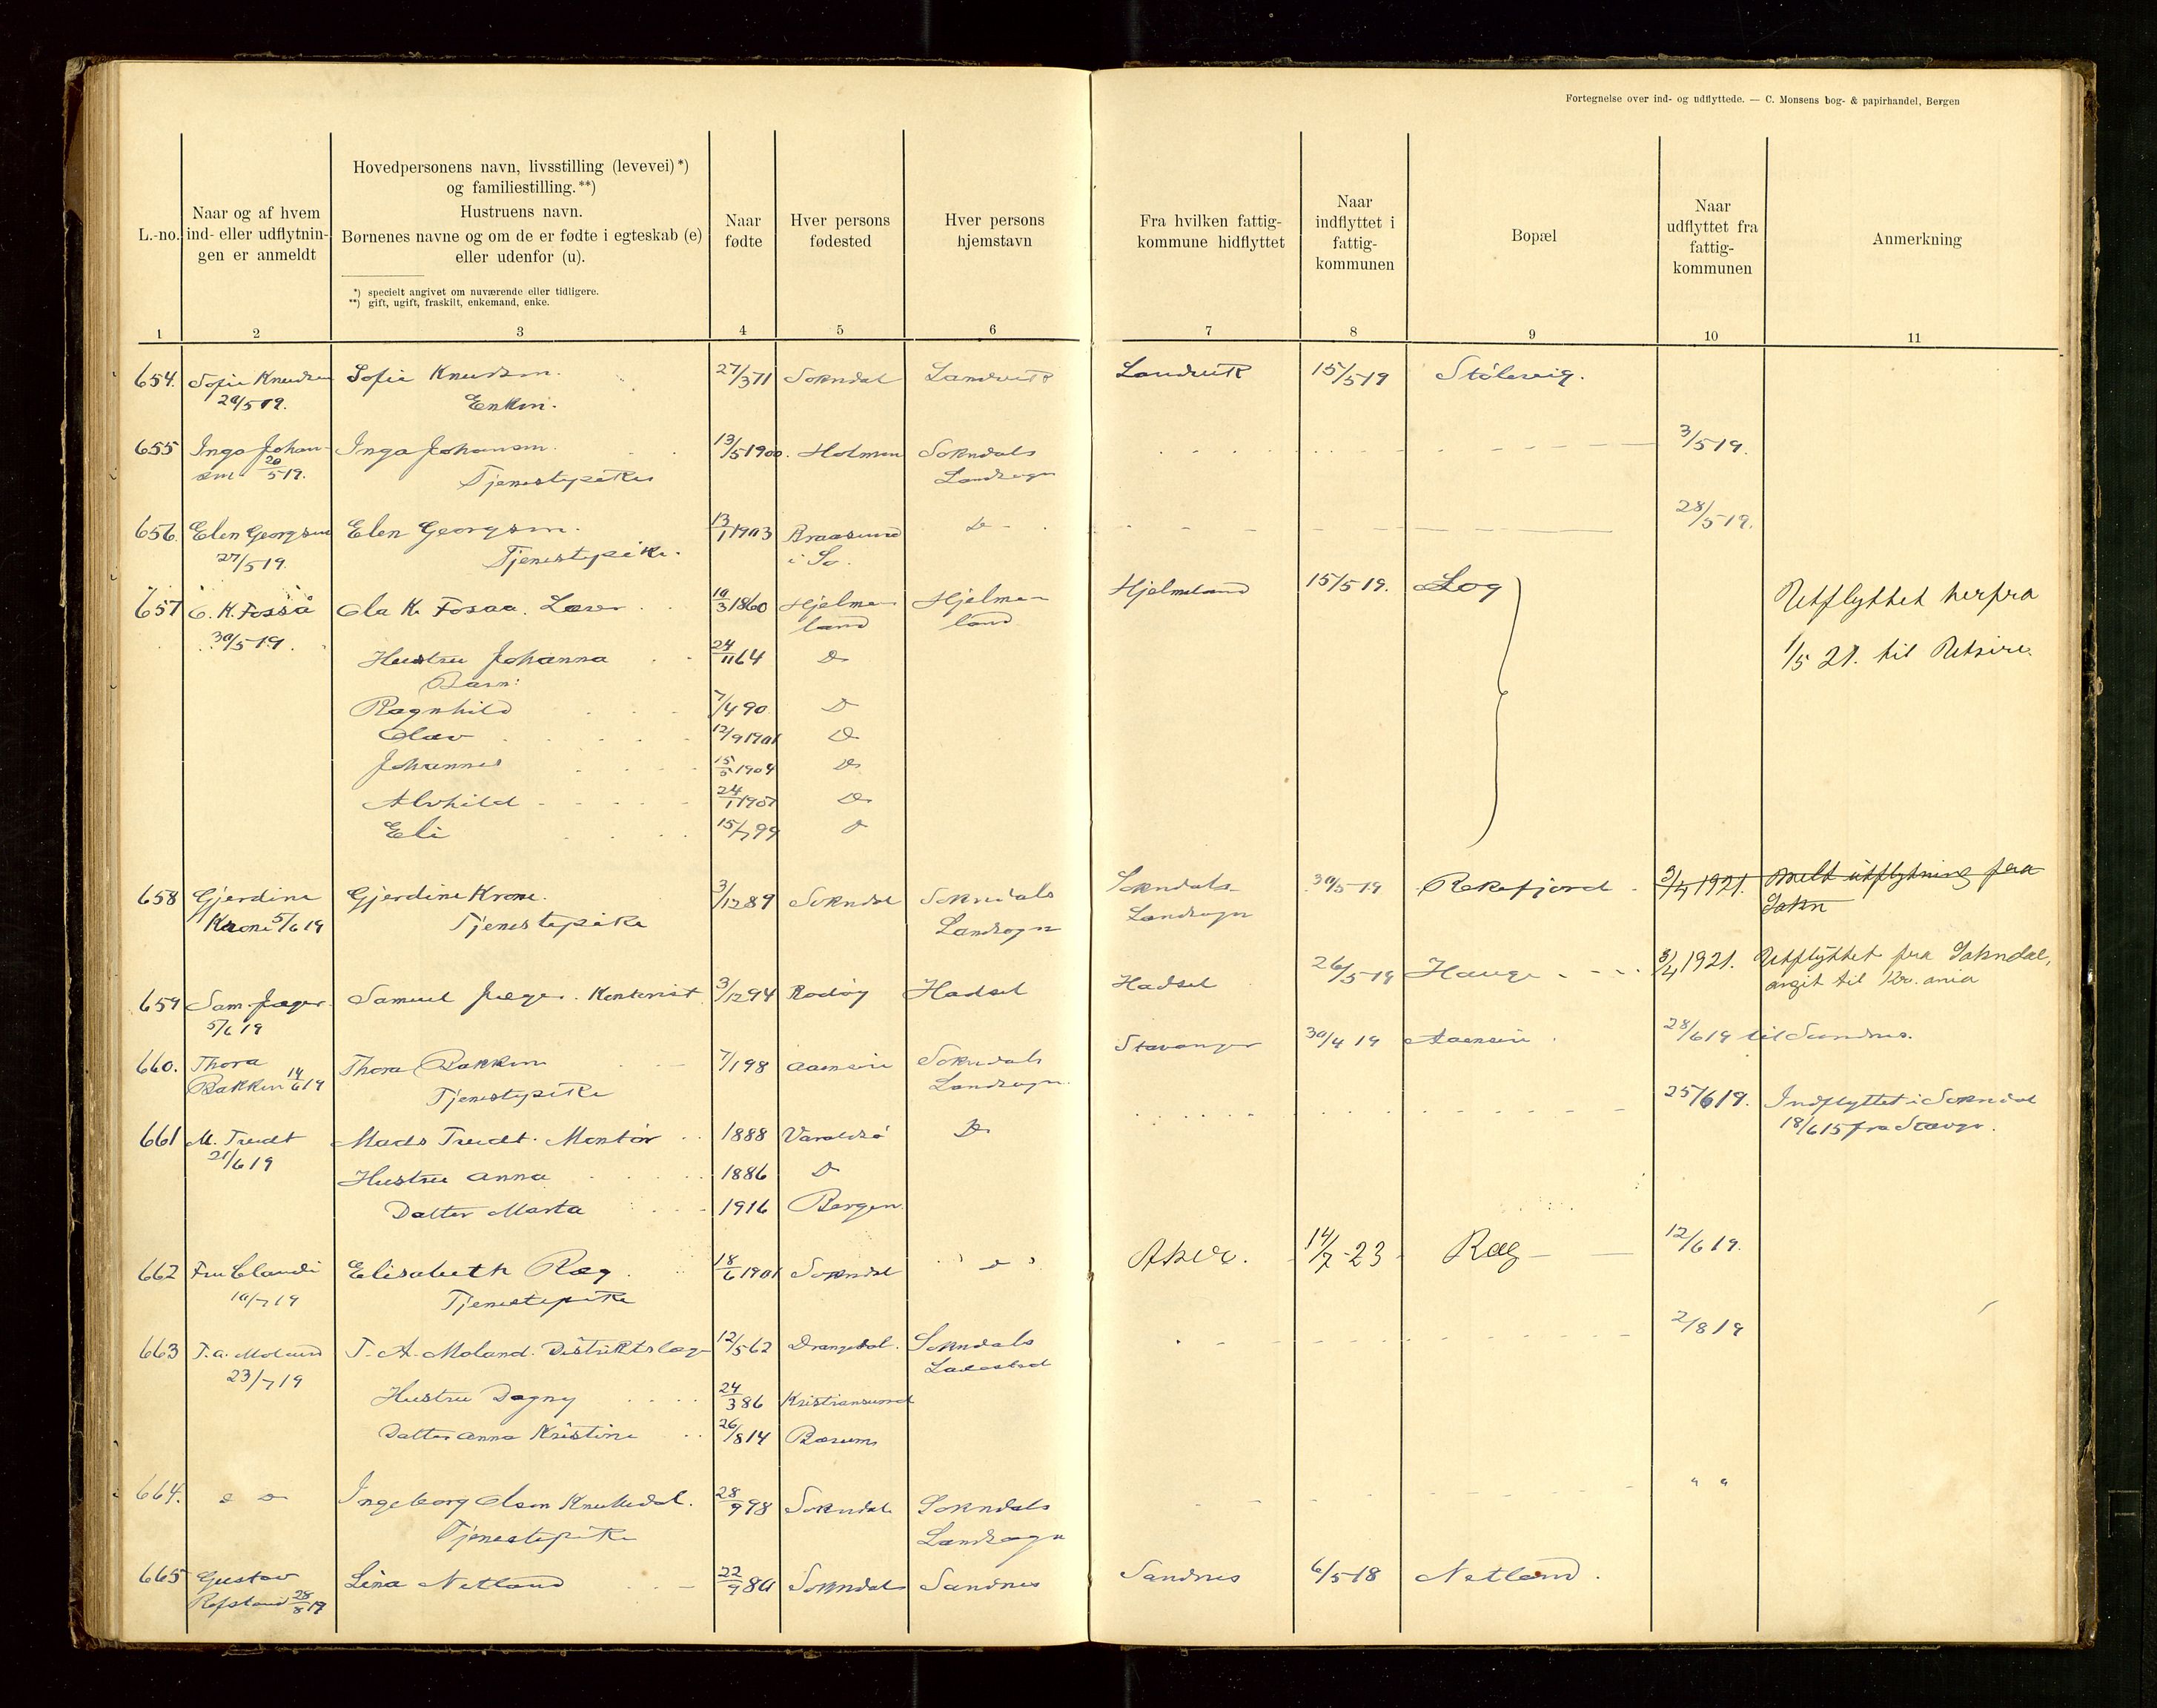 Fortegnelse over ind- og udflyttede. — C. Monsens bog- & papirhandel, Bergen
L.-no.
Naar og af hvem
ind- eller udflytnin-
gen er anmeldt
Hovedpersonens navn, livsstilling (levevei)*)
og familiestilling.**)
Hustruens navn.
Børnenes navne og om de er fødte i egteskab (e)
eller udenfor (u).
*) specielt angivet om nuværende eller tidligere.
**) gift, ugift, fraskilt, enkemand, enke.
Naar
fødte
Hver persons
fødested
Hver persons
hjemstavn
Fra hvilken fattig-
kommune hidflyttet
Naar
indflyttet i
fattig-
kommunen
Bopæl
Naar
udflyttet fra
fattig-
kommunen
Anmerkning
1 2 3 4 5 6 7 8 9 10 11
654. Sofie Knudsen Sofie Knudsen. 27/3 71 Sokndal Landvik Landvik 15/5 19 Stølsvig.
20/5 19. Enken.
655 Inga Johan- Inga Johansen. 13/5 1900. Holmen Sokndals 3/5 19.
sen 20/5 19. Tjenestepike Landsogn
656. Elen Georgsen Elen Georgsen. 13/1 1903 Braasund Do 28/5 19.
27/5 19. Tjenestepike. i So.
657 O. K. Fosså Ola K. Fosaa. Lærer 10/3 1860 Hjelme- Hjelme- Hjelmeland 15/5 19. Log Utflyttet herfra
30/5 19. land land 1/5 21. til Utsire.
Hustru Johanna 24/11 64 Do
Barn:
Ragnhild 7/4 90 Do
Olav 12/9 1901 Do
Johannes 15/5 1904 Do
Alvhild 24/1 1907 Do
Eli 15/7 99 Do
658 Gjerdine Gjerdine Krone. 3/12 89 Sokndal Sokndals Sokndals 30/5 19 Rekefjord 3/4 1921. Meldt utflytning fra
Krone 5/6 19 Tjenestepike Landsogn Landsogn Sokn
659 Sam. Jæger Samuel Jæger. Kontorist 3/12 94 Rodøy Hadsel Hadsel 26/5 19 Hauge 3/4 1921. Utflyttet fra Sokndal,
5/6 19 avgit til Kr.ania
660. Thora Thora Bakken 7/1 98 Aaensire Sokndals Stavanger 30/4 19 Aaensire 28/6 19 til Sandnes.
Bakken 14/6 19 Tjenestepike Landsogn
661 M. Treidt Mads Treidt. Montør 1888 Varaldsø Do 25/6 19. Indflyttet i Sokndal
21/6 19 18/6 15 fra Stavgr.
Hustru Anna 1886 Do
Datter Marta 1916 Bergen.
662 Fru Claudi Elisabeth Ræg 18/6 1901 Sokndal Do Aker. 14/7-23 Ræg 12/6 19.
10/7 19 Tjenestepike
663 T. A. Moland T. A. Moland. Distriktslæge 12/5 62 Drangedal. Sokndals 2/8 19
23/7 19 Ladested
Hustru Dagny 24/3 86 Kristiansund
Datter Anna Kristine 26/8 14 Bærum
664. Do Do Ingeborg Olsen 28/9 98 Sokndal Sokndals " "
Tjenestepike Landsogn
665 Gustav Lina Netland 22/9 80 Sokndal Sandnes Sandnes 6/5 18 Netland.
Refsland 28/8 19